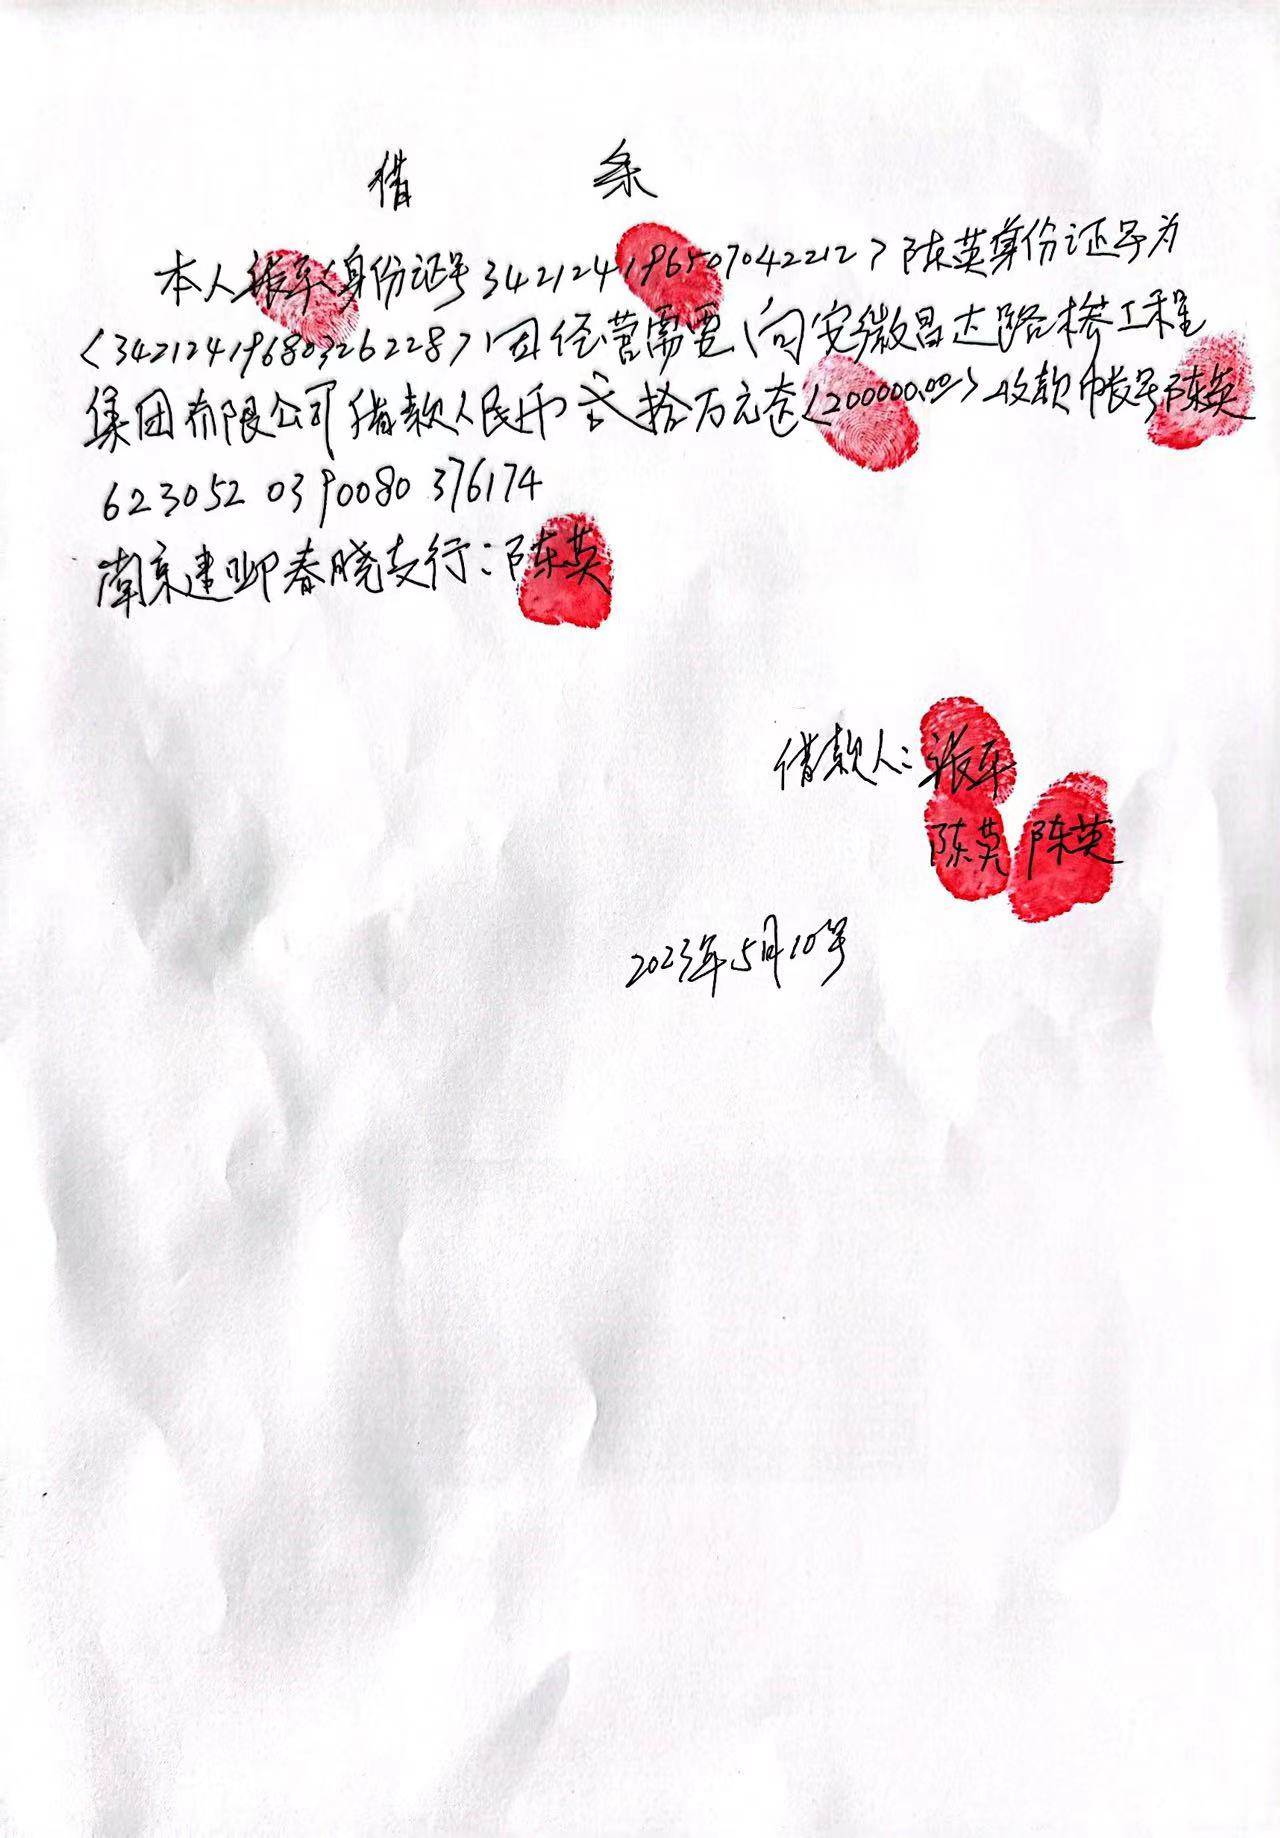 借 条
本人张军<身份证号342124196507042212>陈英身份证号为
<342124196803262287>因经营需要、向安徽昌达路桥工程
集团有限公司借款人民币贰拾万元整<200000.00>收款帐号陈英
623052 0390080 376174
南京建邺春晓支行:陈英
借款人:张军
陈英 陈英
2023年5月10号